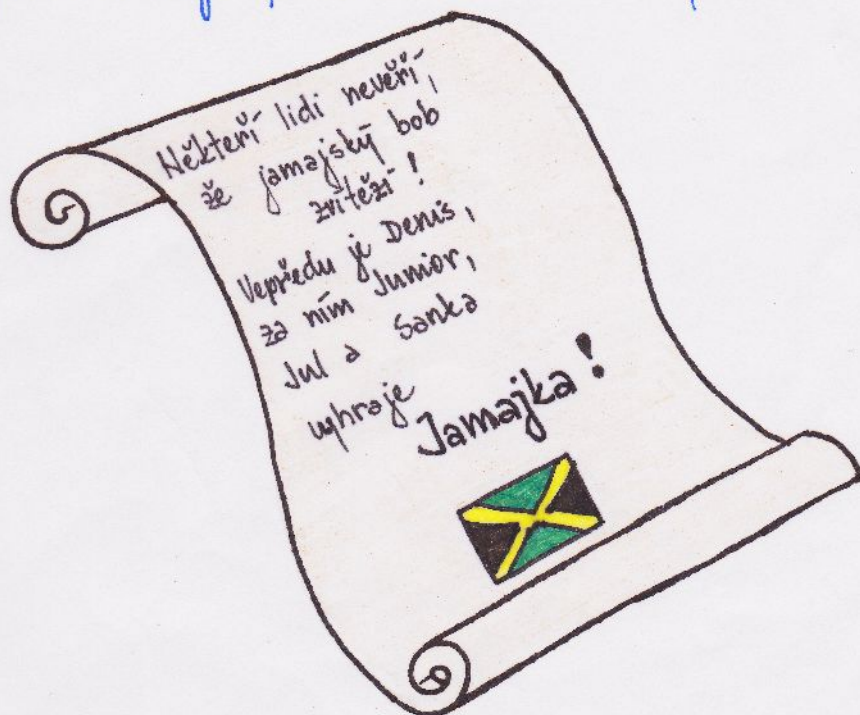 Někteří lidi nevěří,
že jamajský bob
zvítěží!
Vepředu je Denis,
za ním Junior,
Jul a Sanka
vyhraje
Jamajka!